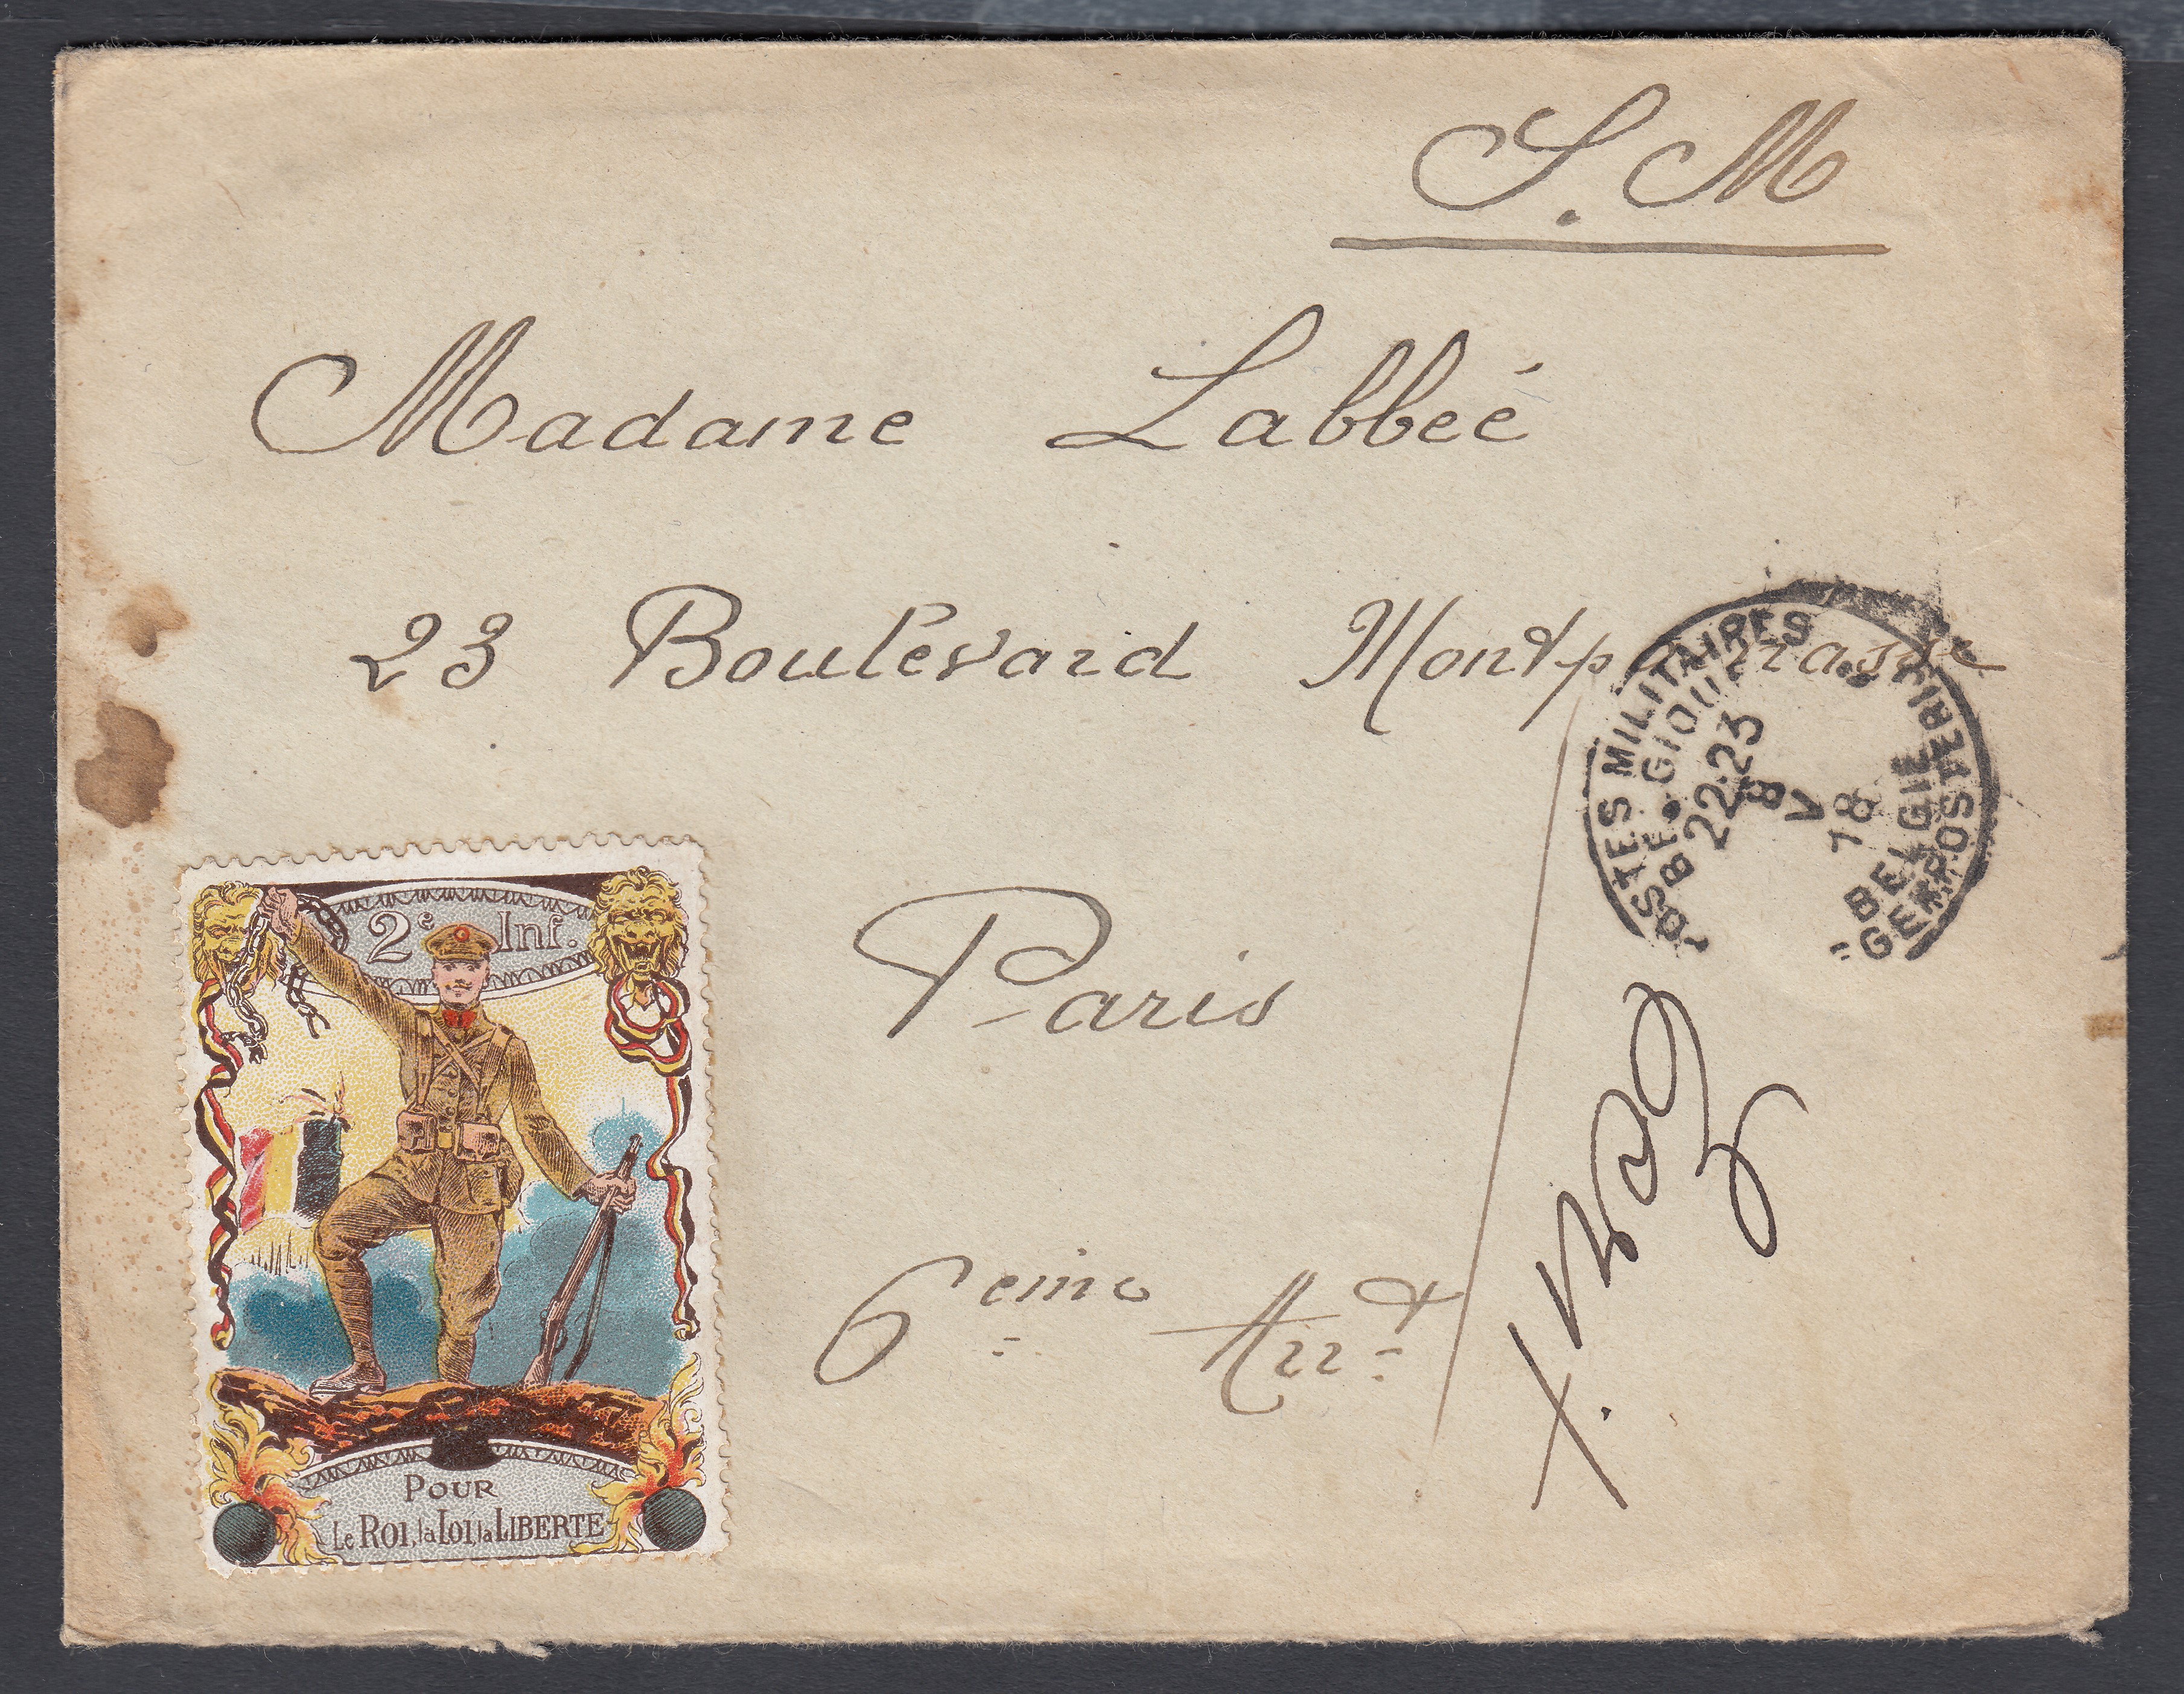 S. M
Madame Labbeé
23 Boulevard Montparnasse
Paris
6eme Arrt
POSTES MILITAIRES
BELGIQUE
22-23
8
V
18
BELGIE
2e Inf.
POUR
Le ROI, la LOI, la LIBERTE